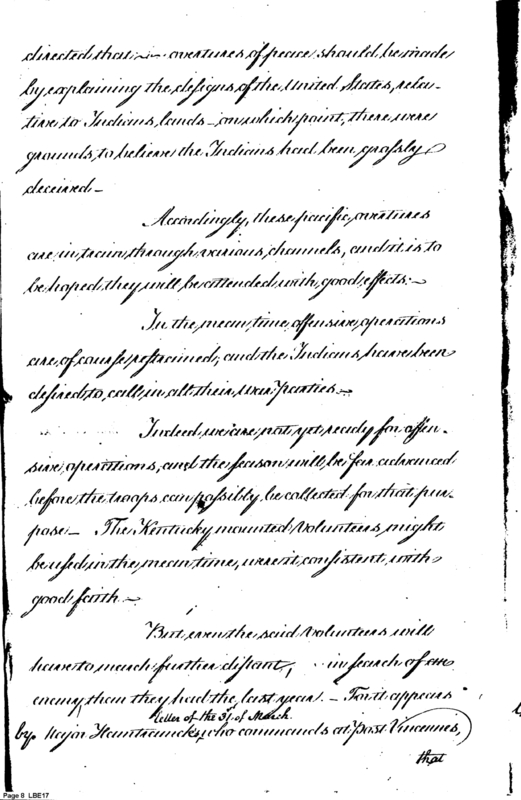 directed that — overtures of peace should be made
by explaining the designs of the United States, rela-
tive to Indians lands — on which point, there were
grounds, to believe the Indians had been grossly
deceived —
Accordingly, these pacific, overtures
are in train, through various, channels, and it is to
be hoped, they will be attended with good effects. —
In the mean, time, offensive, operations
are, of course, restrained, and the Indians, have been
desired to, call in all their, war, parties. —
Indeed we are not yet ready for offen-
sive, operations, and the season will, be far advanced
before the troops can possibly be collected for that pur-
pose — The Kentucky mounted Volunteers, might
be used in the, mean time, were it, consistent, with
good faith —
But even the said Volunteers will
have to march further distant, in search of an
enemy, than they had the last year. — For it appears
letter of the 31st of March
by Major Hamtramck's, who commands at Post Vincennes,
that
Page 8 LBE17